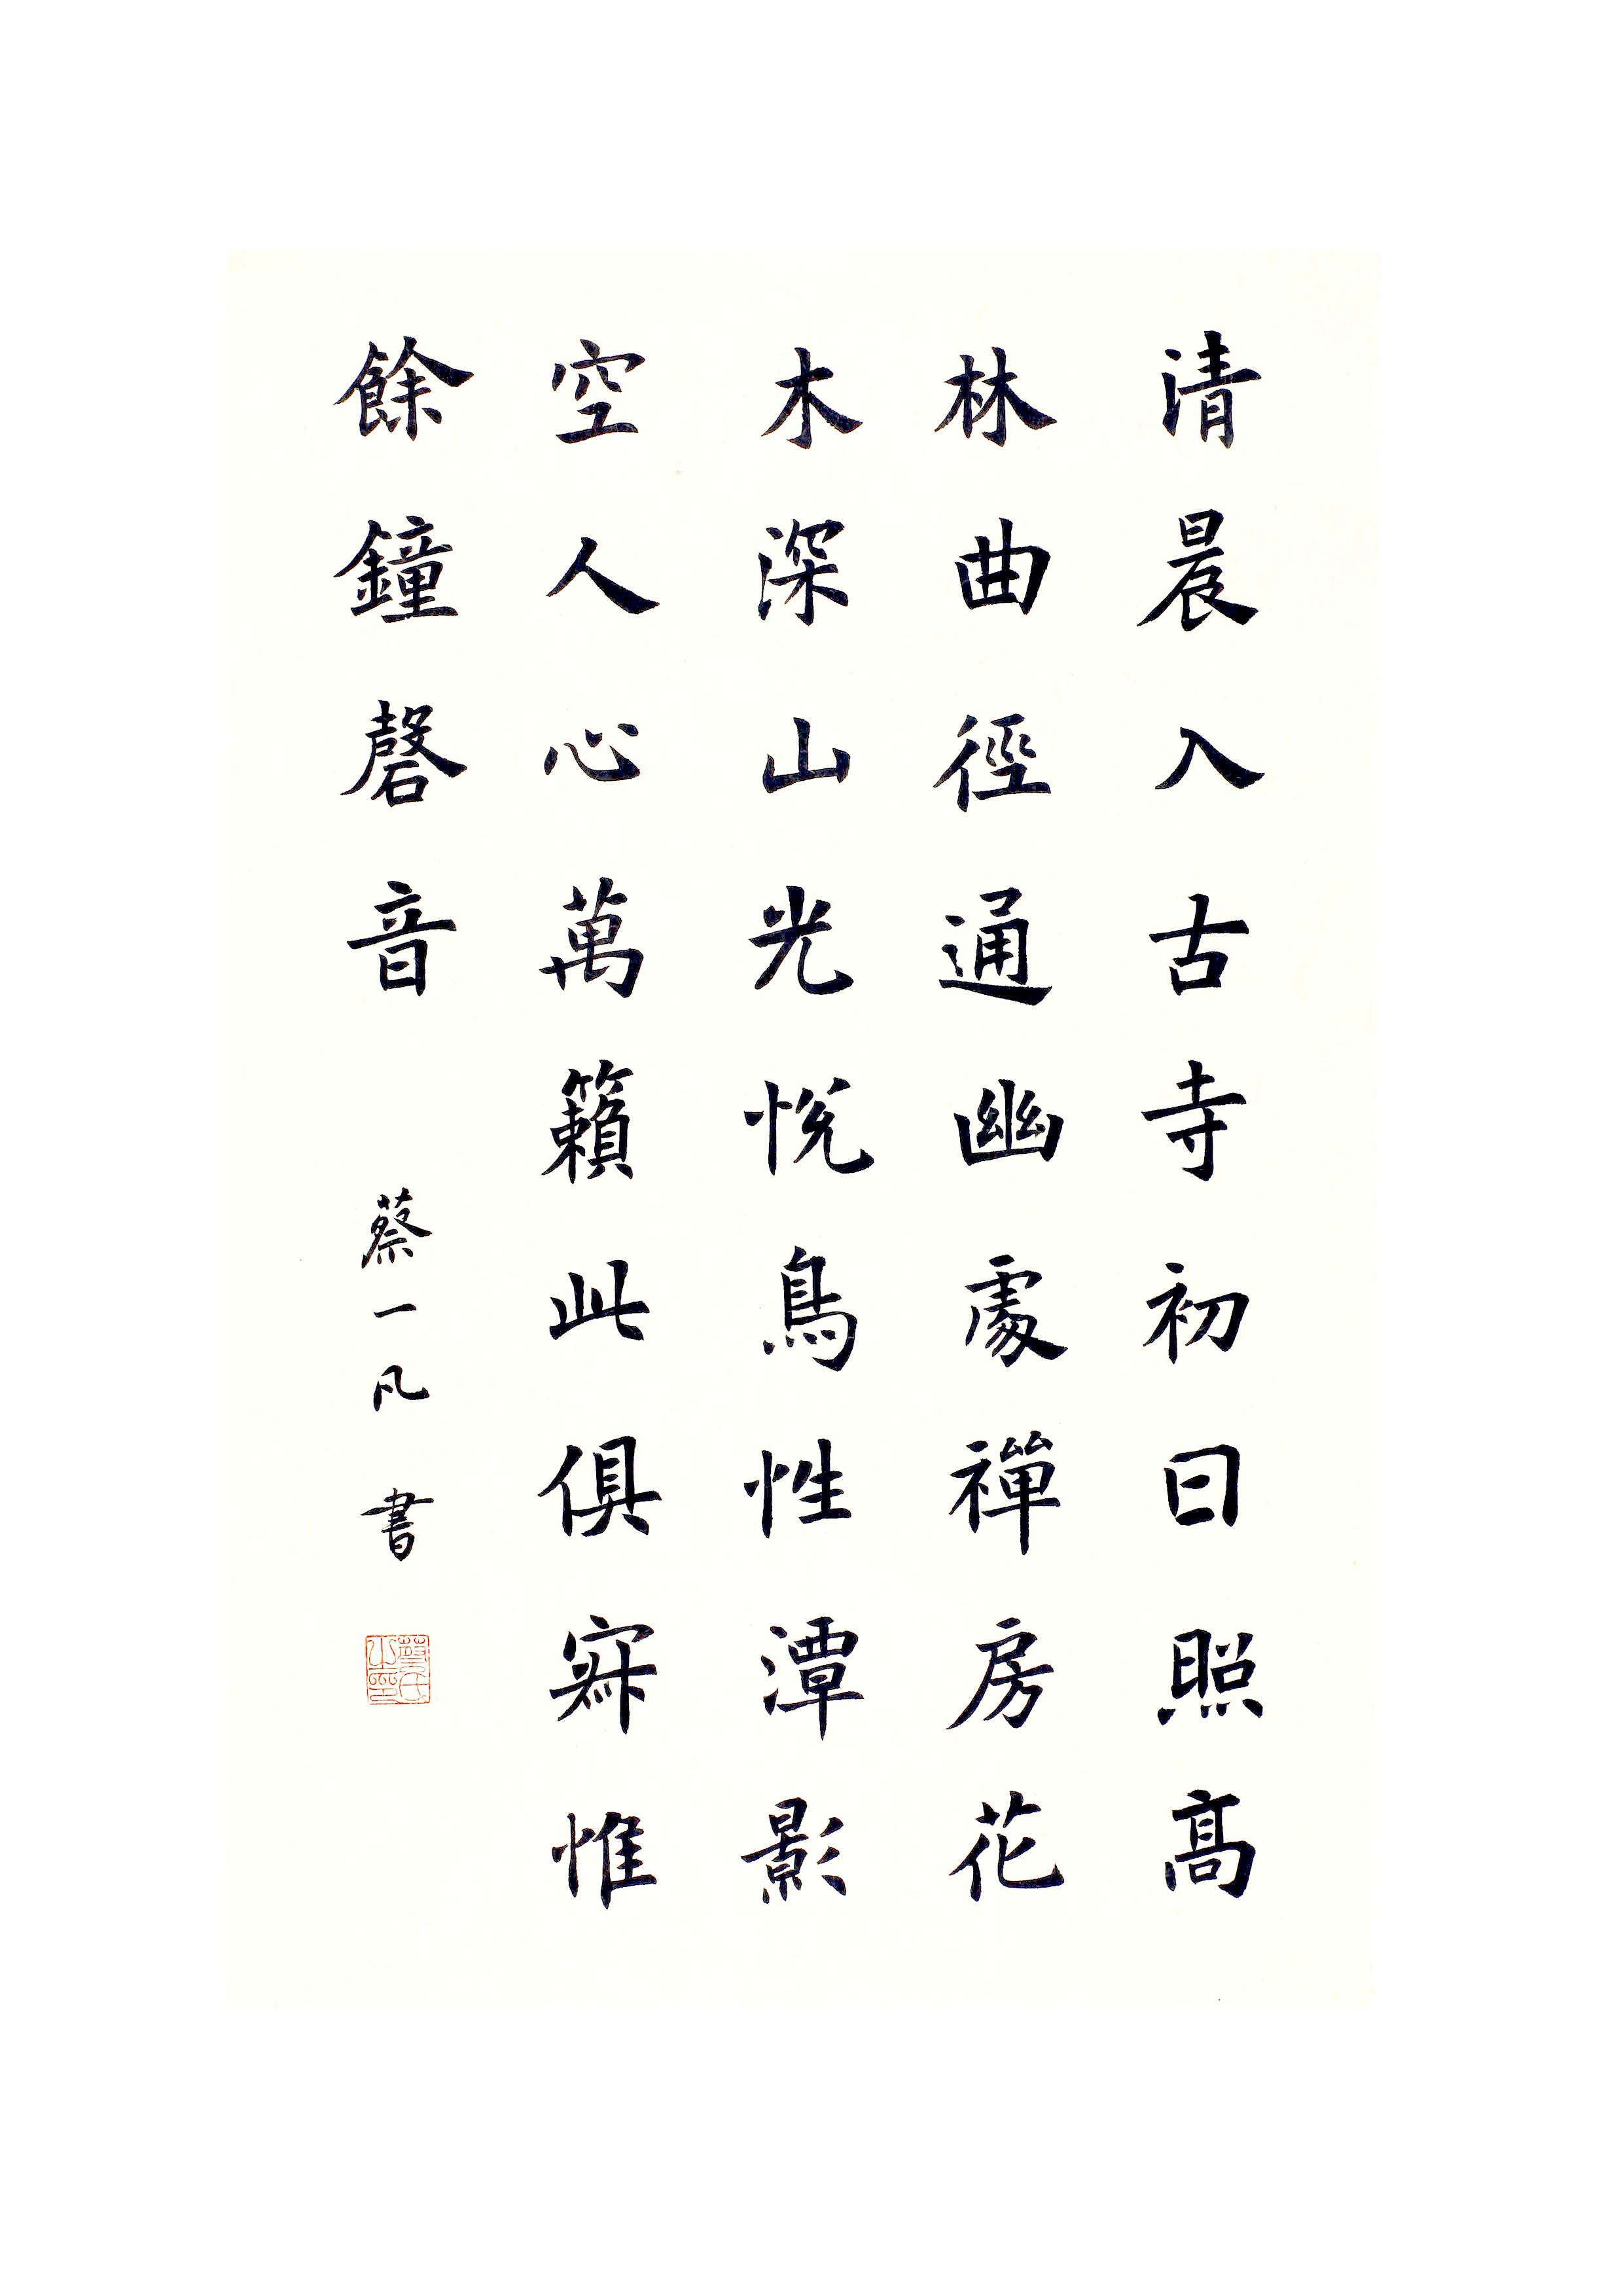 清晨入古寺初日照高
林曲徑通幽處禪房花
木深山光悅鳥性潭影
空人心萬籟此俱寂惟
餘鐘磬音
蔡一凡書
蔡氏之璽